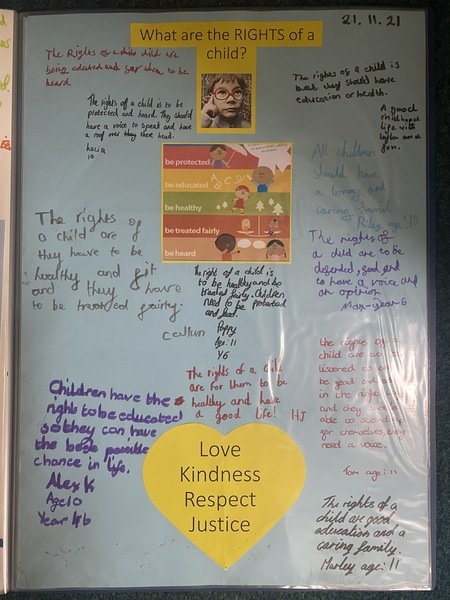 What are the RIGHTS of a
child?
21.11.21
The Rights of a child are
being educated and for them to be
heard
The rights of a child is
that they should have
education or health.
A good
childhood
life with
fun.
The rights of a child is to be
protected and heard. They should
have a voice to speak and have
a roof over they there head.
Lucia
10
be protected
be educated
be healthy
be treated fairly
be heard
All children
should have
a loving and
caring family
Riley age:10
The rights
of a child are
they have to be
healthy and fit
and they have
to be treated fairly.
Callum
The rights of
a child are to be
defended, and
to have a voice and
an opinion
Max-year-6
The right of a child is
to be healthy and be
treated fairly. Children
need to be protected
and
Poppy
Age: 11
Y6
The rights of a child
are for them to be
healthy and have
a good life! HJ
the rights of a
child are to be
listened to and
be good
in the
and they should be
able to stand up
for themselves, they
need a voice.
Tom age: 11
Children have the
right to be educated
so they can have
the best possible
chance in life.
Alex K
Age 10
Year 6
Love
Kindness
Respect
Justice
The rights of a
child are good
education and a
caring family.
Marley age: 11